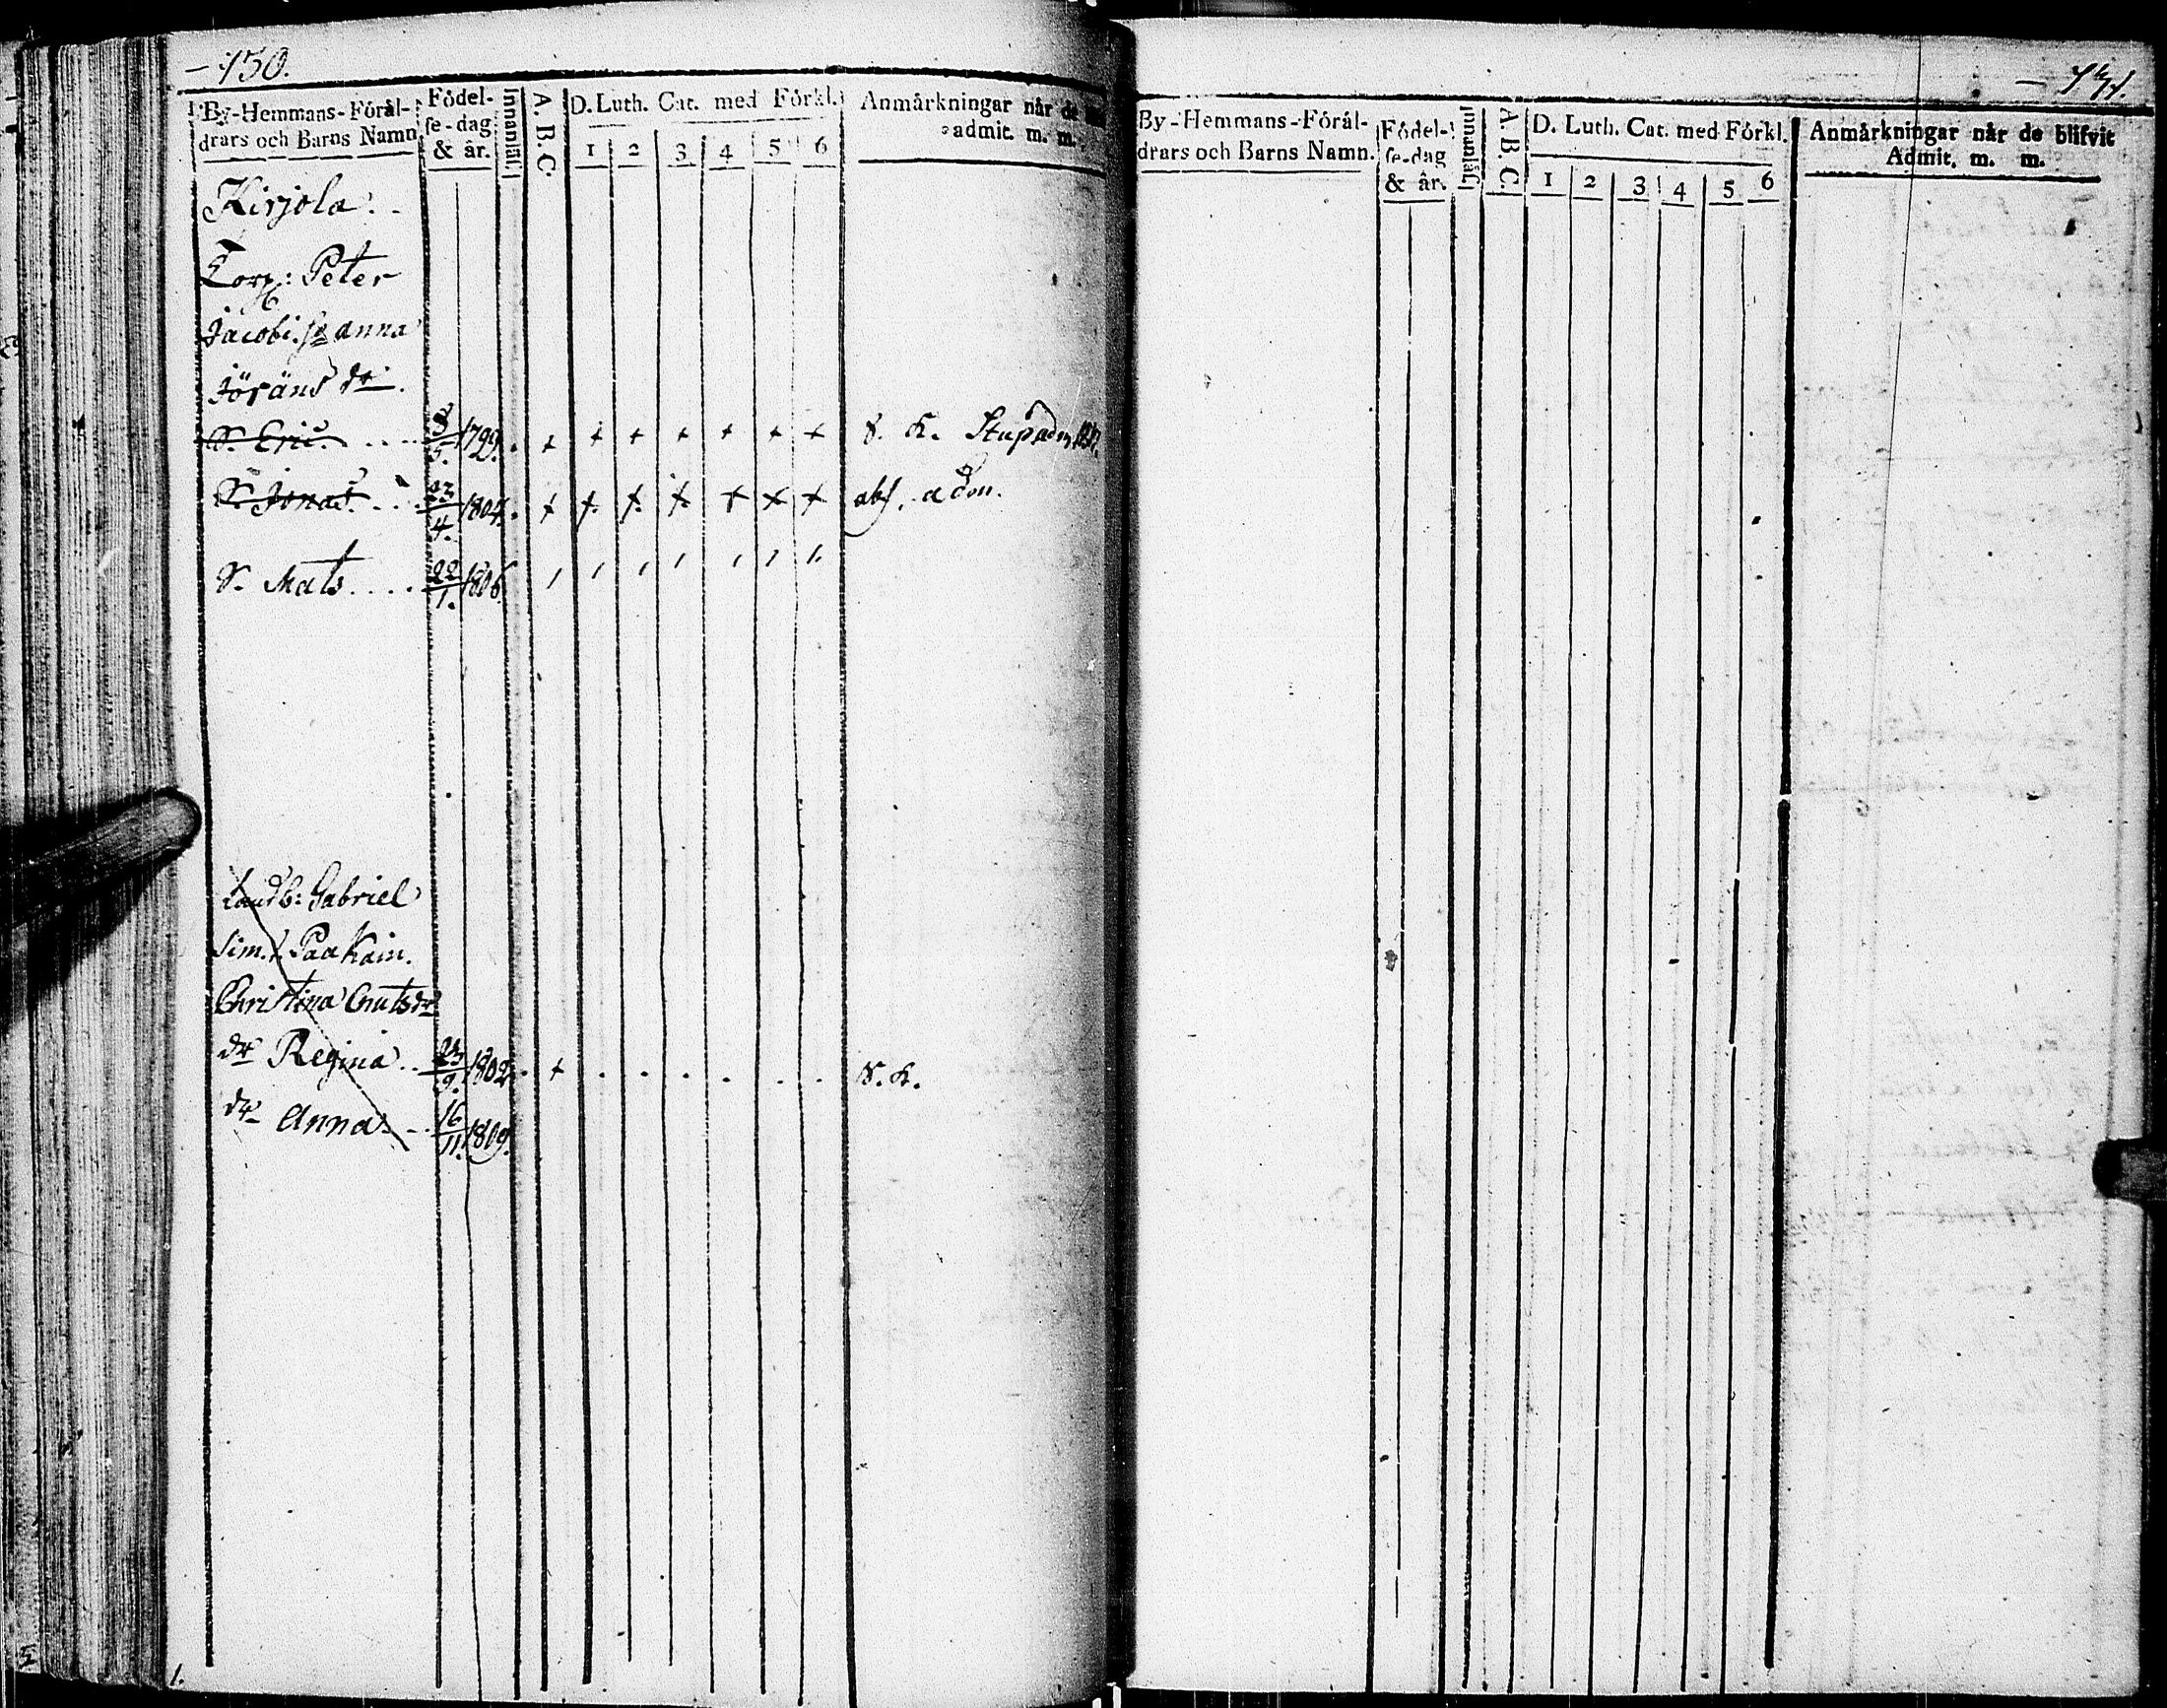 150.
By-Hemmans-Föräl-
drars och Barns Namn.
Födel-
se-dag
& år.
Innanläs.
A. B. C.
D. Luth. Cat. med Förkl.
1 2 3 4 5 6
Anmärkningar når de
admit. m. m.
Kirjola.
Corp: Peter
Jacobi. Anna
Jörans dr.
S. Eric 3/5. 1799. + + + + + + + S. K.
S. Jonas 23/4. 1804. + + + + + + + abs. adm.
S. Mats 22/1. 1806.
Landb: Gabriel
Sim. s. Paakain.
Christina Cnutsdr
dr Regina 23/9. 1802. + . . . . . . S. K.
dr Anna 16/11. 1809.
By-Hemmans-Föräl-
drars och Barns Namn.
Födel-
se-dag
& år.
Innanläs.
A. B. C.
D. Luth. Cat. med Förkl.
1 2 3 4 5 6
Anmärkningar når de blifvit
Admit. m. m.